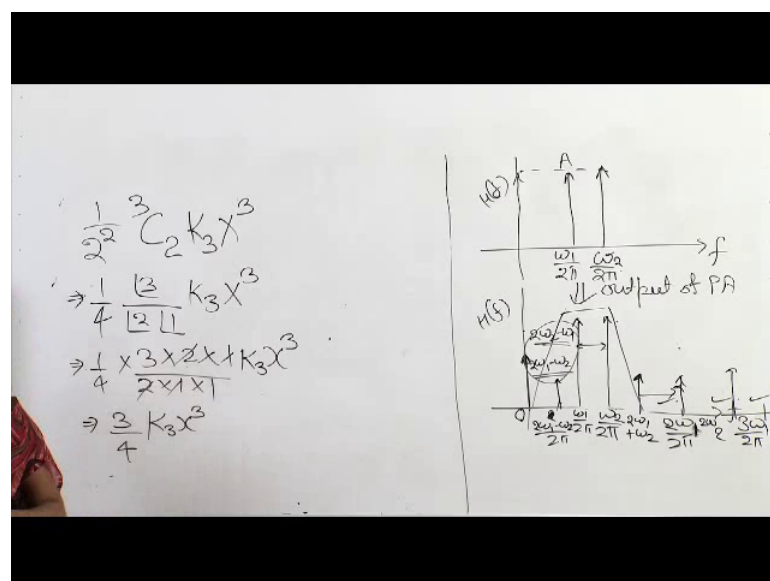 1/2² ³C₂ K₃X³
⇒ 1/4 ⌊3/⌊2 ⌊1 K₃X³
⇒ 1/4 × 3×2×1/2×1×1 K₃x³
⇒ 3/4 K₃x³
H(f)
A
f
ω₁/2π ω₂/2π
⇓ output of PA
H(f)
2ω₂-ω₁
2ω₁-ω₂
0 2ω₁-ω₂/2π ω₁/2π ω₂/2π 2ω₁+ω₂ 2ω₁/2π 2ω₂ 3ω₁/2π